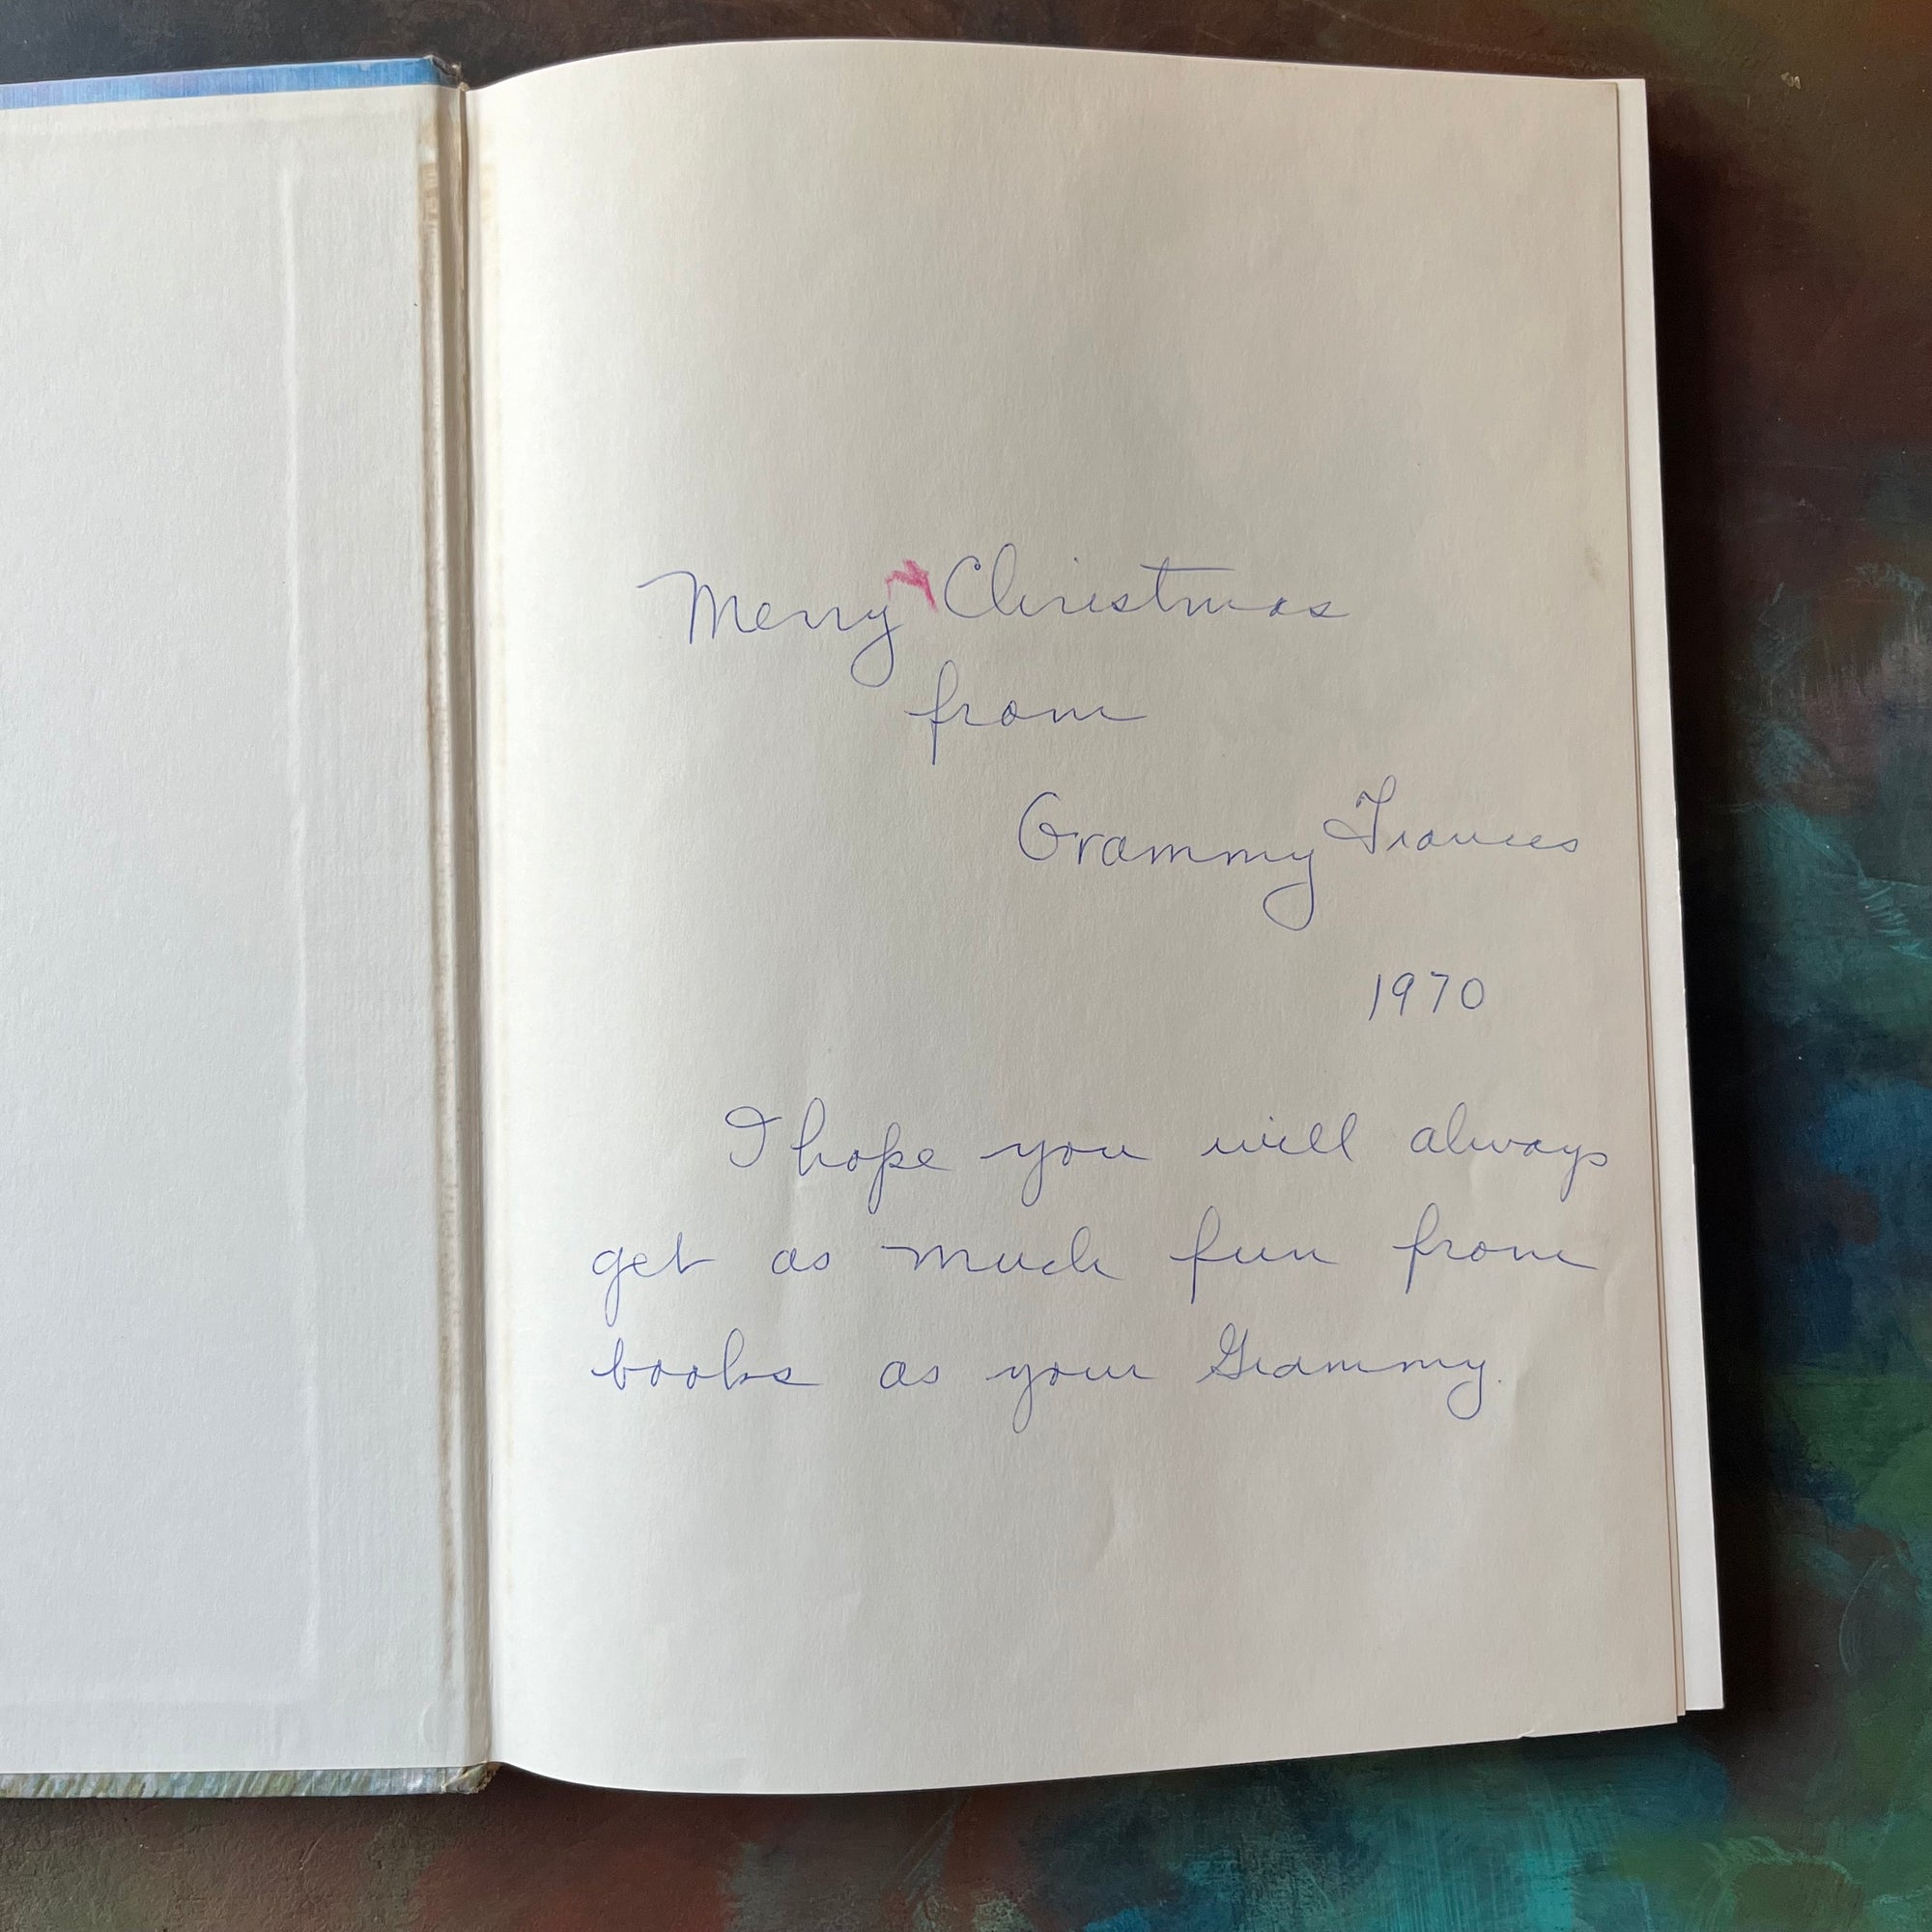 Merry Christmas
from
Grammy Frances
1970
I hope you will always
get as much fun from
books as your Grammy.